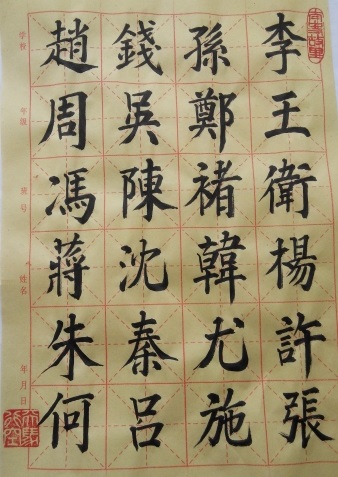 趙錢孫李
周吳鄭王
馮陳褚衛
蔣沈韓楊
朱秦尤許
何呂施張
学校
年级
班号
姓名
年月日